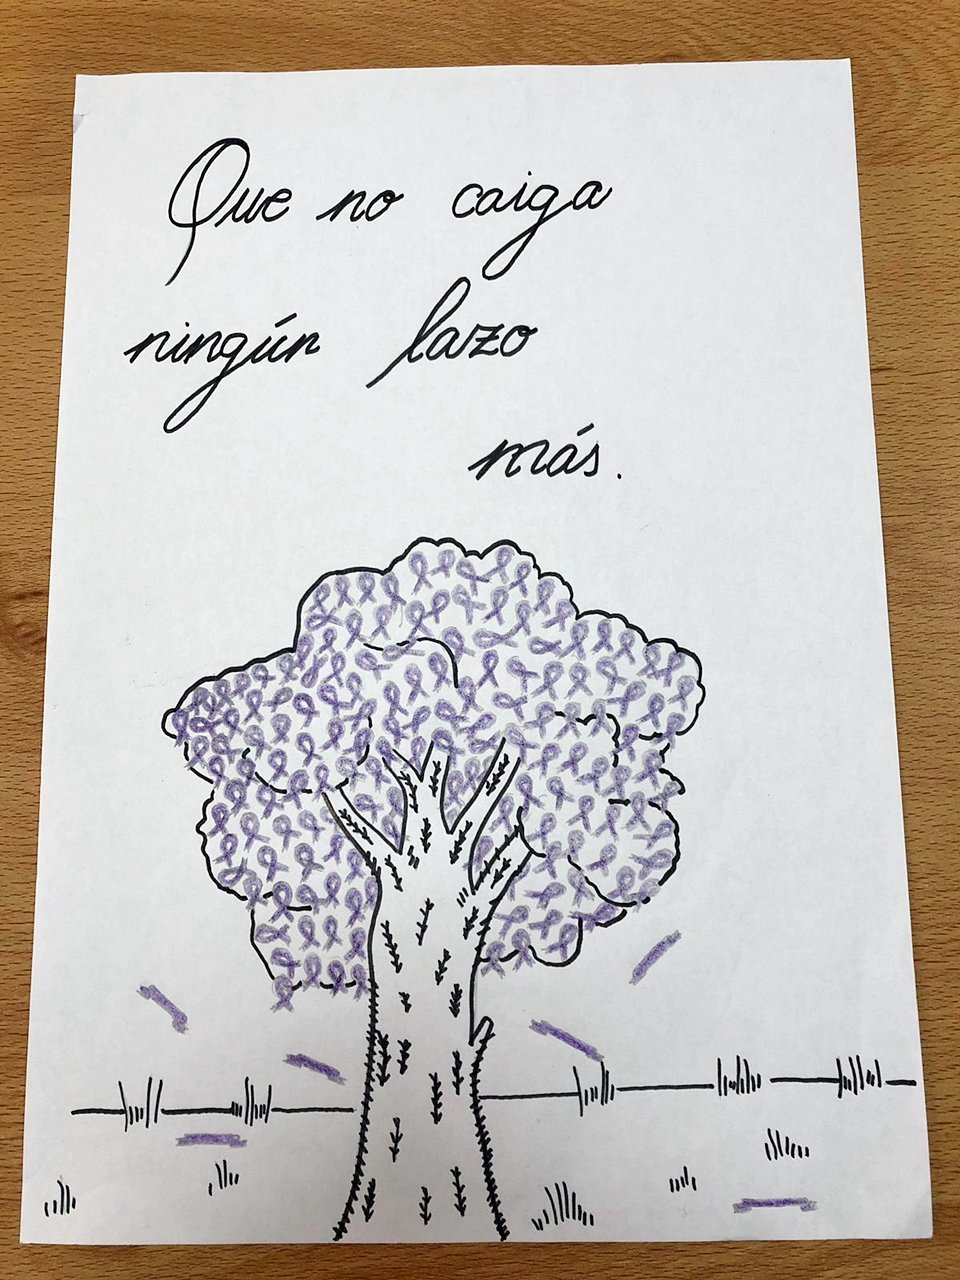 Que no caiga
ningún lazo
más.